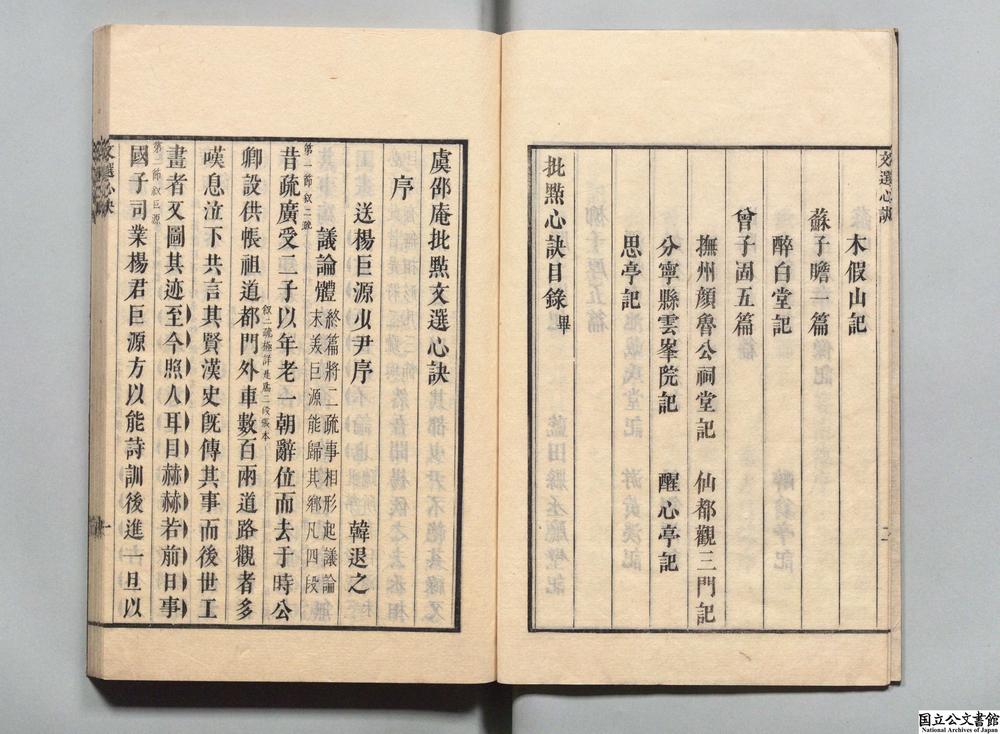 文選心訣
木假山記
蘇子瞻一篇
醉白堂記
曾子固五篇
撫州顔魯公祠堂記 仙都觀三門記
分寧縣雲峯院記 醒心亭記
思亭記
批點心訣目錄畢
二
虞邵庵批點文選心訣
序
送楊巨源少尹序 韓退之
議論體 終篇將二疏事相形起議論
末美巨源能歸其鄉凡四段
第一節叙二疏
昔疏廣受二子以年老一朝辭位而去于時公
卿設供帳祖道都門外車數百兩道路觀者多
叙二疏極詳是爲二段張本
嘆息泣下共言其賢漢史旣傳其事而後世工
畫者又圖其迹至今照人耳目赫赫若前日事
第二節叙巨源
國子司業楊君巨源方以能詩訓後進一旦以
文選心訣
一
国立公文書館
National Archives of Japan